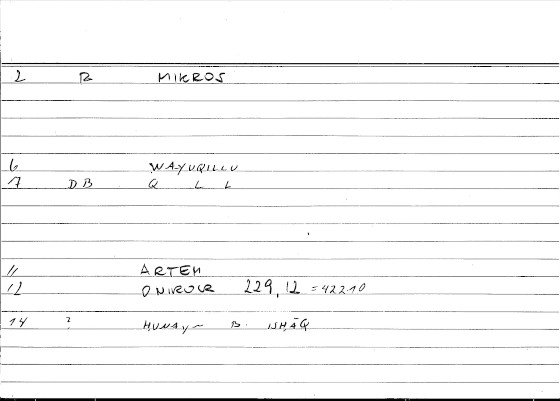 2 R MIKROS
6 WAYUQILLU
7 DB Q L L
11 ARTEM
12 ONIROCR 229,12 =422.10
14 ? HUNAYN B. ISHĀQ